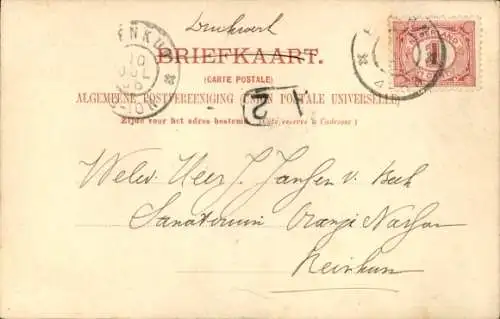 Drukwerk
BRIEFKAART.
(CARTE POSTALE)
ALGEMEENE POSTVEREENIGING (UNION POSTALE UNIVERSELLE)
Zijde voor het adres bestemd. (Côté réservé à l'adresse)
NEDERLAND
1
10
JUL
2
Welw. Heer J. Jansen v.
Sanatorium Oranje Nassau
Renkum